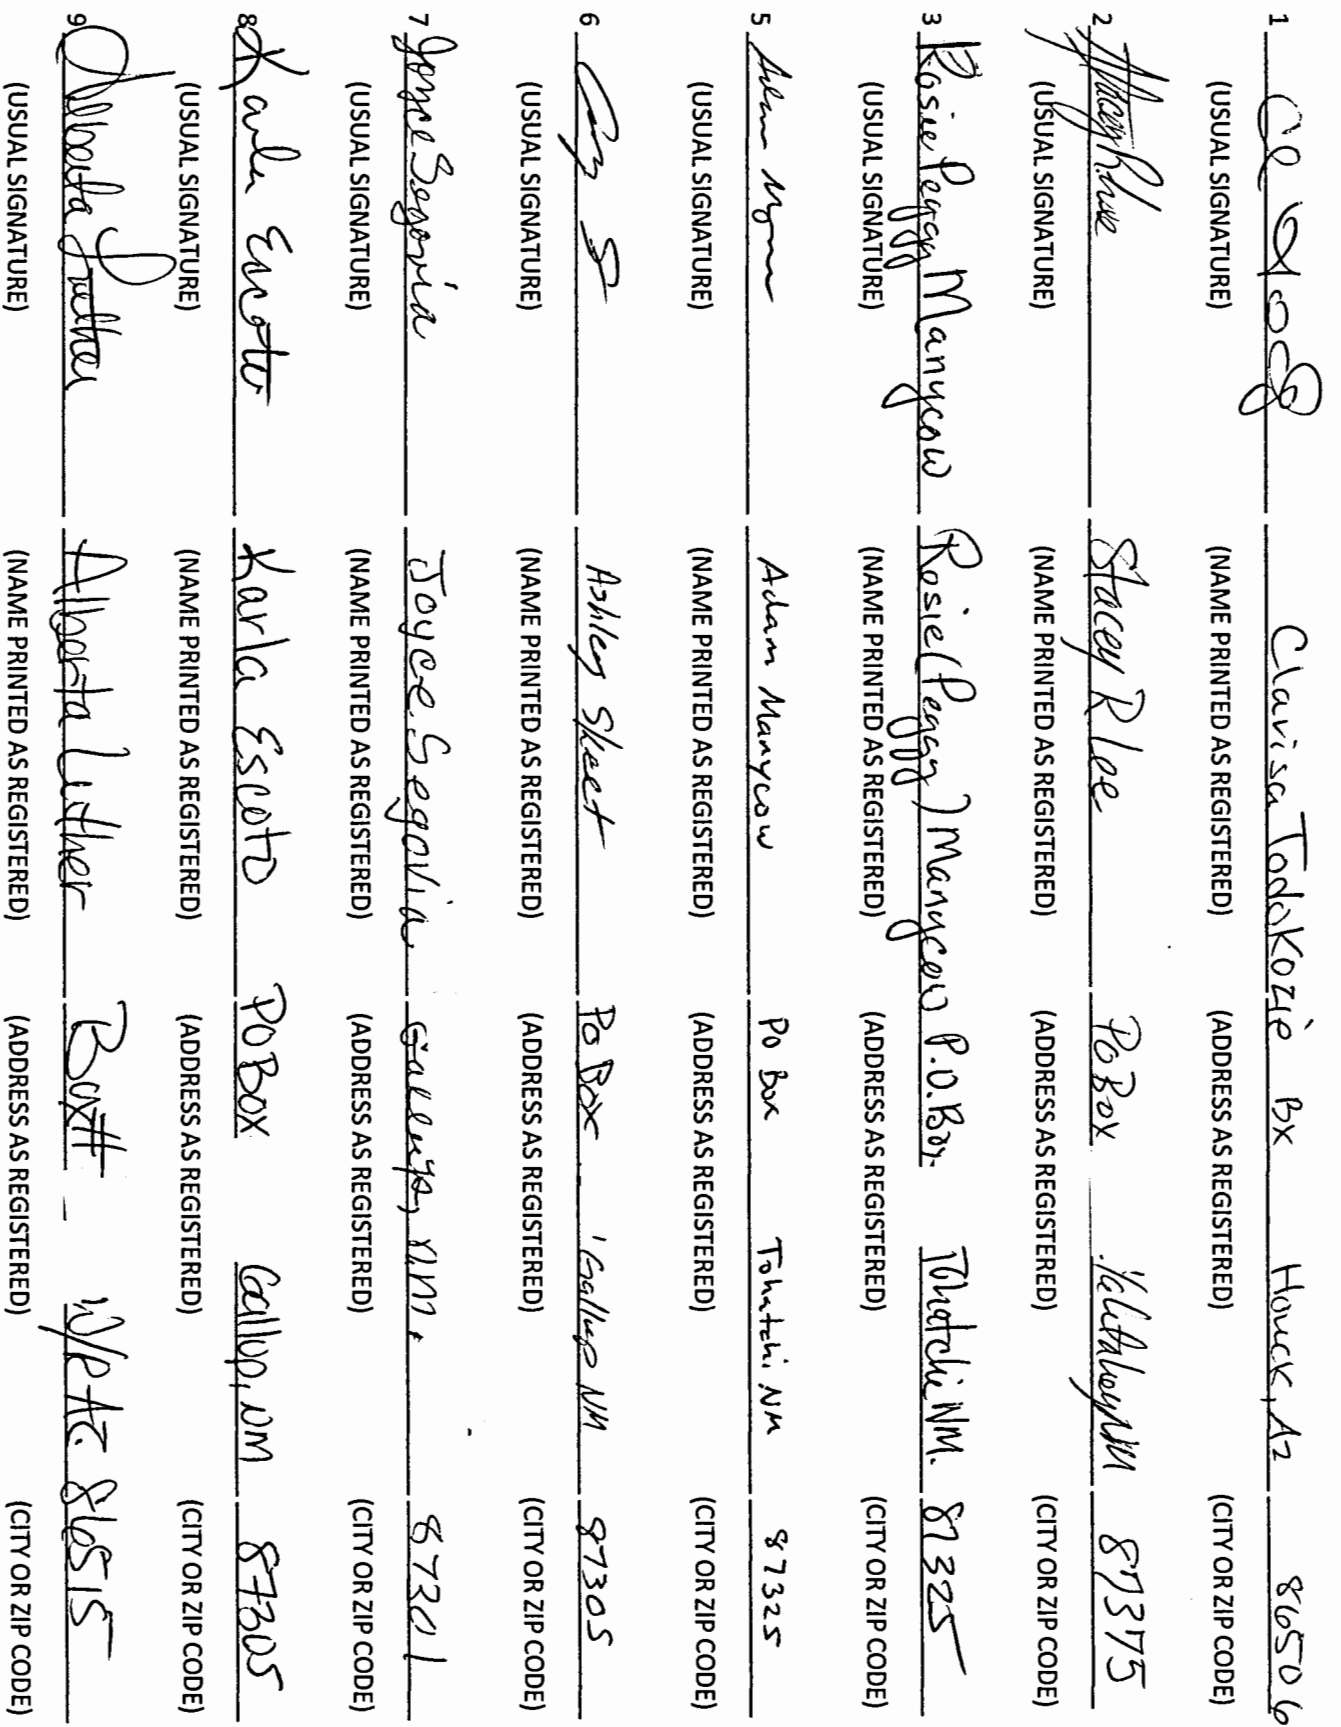 1 Clarisa Todokozie Bx Houck, Az 86506
(USUAL SIGNATURE) (NAME PRINTED AS REGISTERED) (ADDRESS AS REGISTERED) (CITY OR ZIP CODE)
2 Stacey R Lee PO Box Yahtahey NM 87375
(USUAL SIGNATURE) (NAME PRINTED AS REGISTERED) (ADDRESS AS REGISTERED) (CITY OR ZIP CODE)
3 Rosie Peggy Manycow Rosie (Peggy) Manycow P.O. Box Tohatchi NM. 87325
(USUAL SIGNATURE) (NAME PRINTED AS REGISTERED) (ADDRESS AS REGISTERED) (CITY OR ZIP CODE)
5 Adam Manycow PO Box Tohatchi NM 87325
(USUAL SIGNATURE) (NAME PRINTED AS REGISTERED) (ADDRESS AS REGISTERED) (CITY OR ZIP CODE)
6 Ashley Skeet PO Box Gallup NM 87305
(USUAL SIGNATURE) (NAME PRINTED AS REGISTERED) (ADDRESS AS REGISTERED) (CITY OR ZIP CODE)
7 Joyce Segovia Joyce Segovia Gallup, n.m. 87301
(USUAL SIGNATURE) (NAME PRINTED AS REGISTERED) (ADDRESS AS REGISTERED) (CITY OR ZIP CODE)
8 Karla Escoto Karla Escoto PO Box Gallup, NM 87305
(USUAL SIGNATURE) (NAME PRINTED AS REGISTERED) (ADDRESS AS REGISTERED) (CITY OR ZIP CODE)
9 Alberta Luther Alberta Luther Box# W/R Az. 86515
(USUAL SIGNATURE) (NAME PRINTED AS REGISTERED) (ADDRESS AS REGISTERED) (CITY OR ZIP CODE)